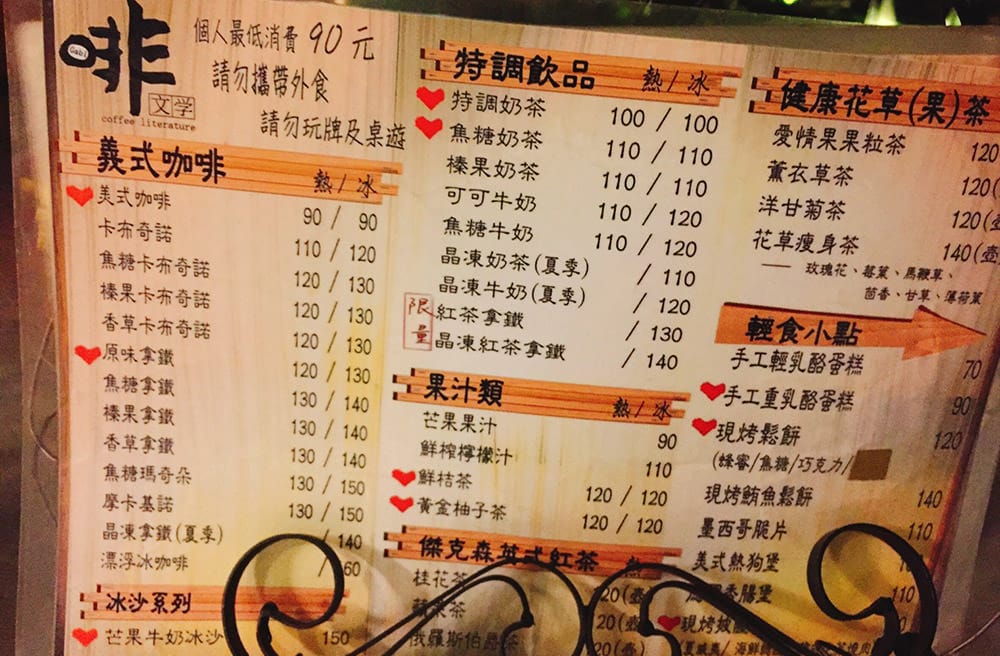 啡
Gabi
文学
coffee literature
個人最低消費 90 元
請勿攜帶外食
請勿玩牌及桌遊
義式咖啡 熱/冰
美式咖啡 90 / 90
卡布奇諾 110 / 120
焦糖卡布奇諾 120 / 130
榛果卡布奇諾 120 / 130
香草卡布奇諾 120 / 130
原味拿鐵 120 / 130
焦糖拿鐵 130 / 140
榛果拿鐵 130 / 140
香草拿鐵 130 / 140
焦糖瑪奇朵 130 / 150
摩卡基諾 130 / 150
晶凍拿鐵(夏季) / 140
漂浮冰咖啡 / 60
冰沙系列
芒果牛奶冰沙 150
特調飲品 熱/冰
特調奶茶 100 / 100
焦糖奶茶 110 / 110
榛果奶茶 110 / 110
可可牛奶 110 / 120
焦糖牛奶 110 / 120
晶凍奶茶(夏季) / 110
晶凍牛奶(夏季) / 120
限量
紅茶拿鐵 / 130
晶凍紅茶拿鐵 / 140
果汁類 熱/冰
芒果果汁 90
鮮榨檸檬汁 110
鮮桔茶 120 / 120
黃金柚子茶 120 / 120
傑克森英式紅茶 熱
桂花茶 20(壺
茶 20(壺
俄羅斯伯爵茶 20(壺
健康花草(果)茶
愛情果果粒茶 120
薰衣草茶 120(
洋甘菊茶 120(壺
花草瘦身茶 140(壺
—— 玫瑰花、莓葉、馬鞭草、
茴香、甘草、薄荷葉
輕食小點
手工輕乳酪蛋糕 70
手工重乳酪蛋糕 90
現烤鬆餅 120
(蜂蜜/焦糖/巧克力/
現烤鮪魚鬆餅 140
墨西哥脆片 110
美式熱狗堡
香腸堡 110
現烤披